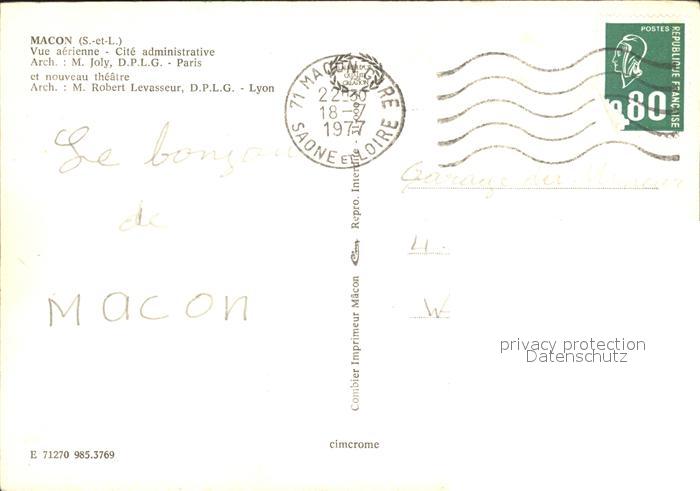 MACON (S.-et-L.)
Vue aérienne - Cité administrative
Arch. : M. Joly, D.P.L.G. - Paris
et nouveau théâtre
Arch. : M. Robert Levasseur, D.P.L.G. - Lyon
71 MACON GARE
18-7
1977
SAONE ET LOIRE
POSTES
REPUBLIQUE FRANÇAISE
0,80
Le bonjour
de
MACON
Garage du
4
W
Combier Imprimeur Mâcon Cim Repro.
privacy protection
Datenschutz
cimcrome
E 71270 985.3769